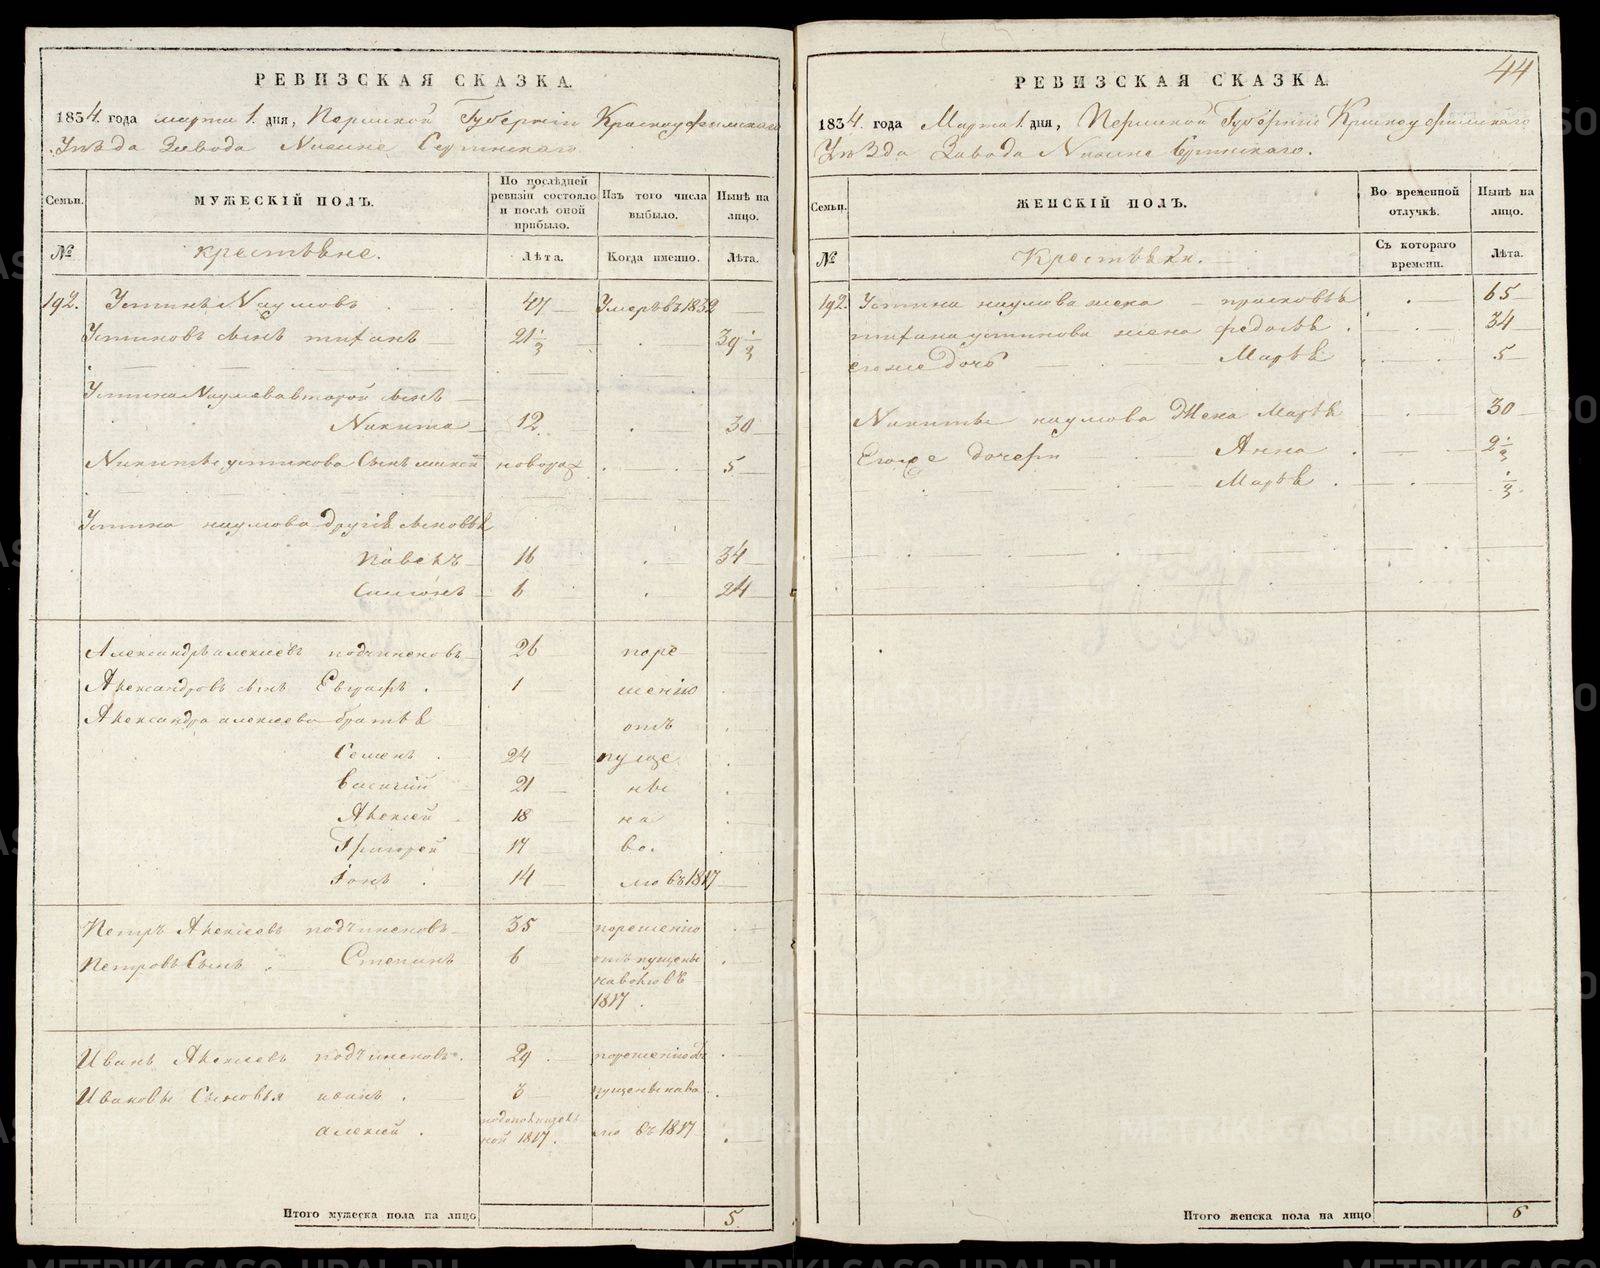 РЕВИЗСКАЯ СКАЗКА.
1834. года марта 1. дня, Пермской Губернiи Красноуфимскаго
Уѣзда Завода Нижне Сергинскаго.
Семьи.
МУЖЕСКIЙ ПОЛЪ.
По послѣдней ревизiи состояло и послѣ оной прибыло.
Изъ того числа выбыло.
Нынѣ на лицо.
№
крестьяне.
Лѣта.
Когда именно.
Лѣта.
192. Устинъ Наумовъ 47 Умеръ въ 1832
Устиновъ сынъ тифанъ 21 1/2 39 1/2
Устина Наумова второй сынъ
Никита 12. 30
Никиты устинова Сынъ новорож 5
Устина наумова другiя сыновья
Павелъ 16 34
Симонъ 6 24
Александръ алексеевъ подчиненовъ 26 поре
Александровъ сынъ Евграфъ. 1 шенiю
Александра алексеева братья отъ
Семенъ. 24 пуще
Василiй 21 ны
Алексей 18 на
Григорей 17 во.
Iонъ. 14 лю въ 1817
Петръ Алексеевъ подчиненовъ 35 порешенiю
Петровъ Сынъ Степанъ 6 отъ пущены
наволювъ
1817.
Иванъ Алексеевъ подчиненовъ. 29 порешенiю от
Ивановы Сыновья иванъ. 3 пущены наво
алексей. 1817. лю въ 1817
Итого мужеска пола на лицо 5
44
РЕВИЗСКАЯ СКАЗКА.
1834. года Марта 1. дня, Пермской Губернiи Красноуфимскаго
Уѣзда Завода Нижне Сергинскаго.
Семьи.
ЖЕНСКIЙ ПОЛЪ.
Во временной отлучкѣ.
Нынѣ на лицо.
№
Крестьянки.
Съ котораго времени.
Лѣта.
192. Устина наумова жена прасковья 65
тифана устинова жена федосья. 34
егоже дочь Марья 5
Никиты наумова Жена Марья 30
Егоже дочери Анна 2 1/2
Марья. 1/2.
Итого женска пола на лицо 6
METRIKI.GASO-URAL.RU